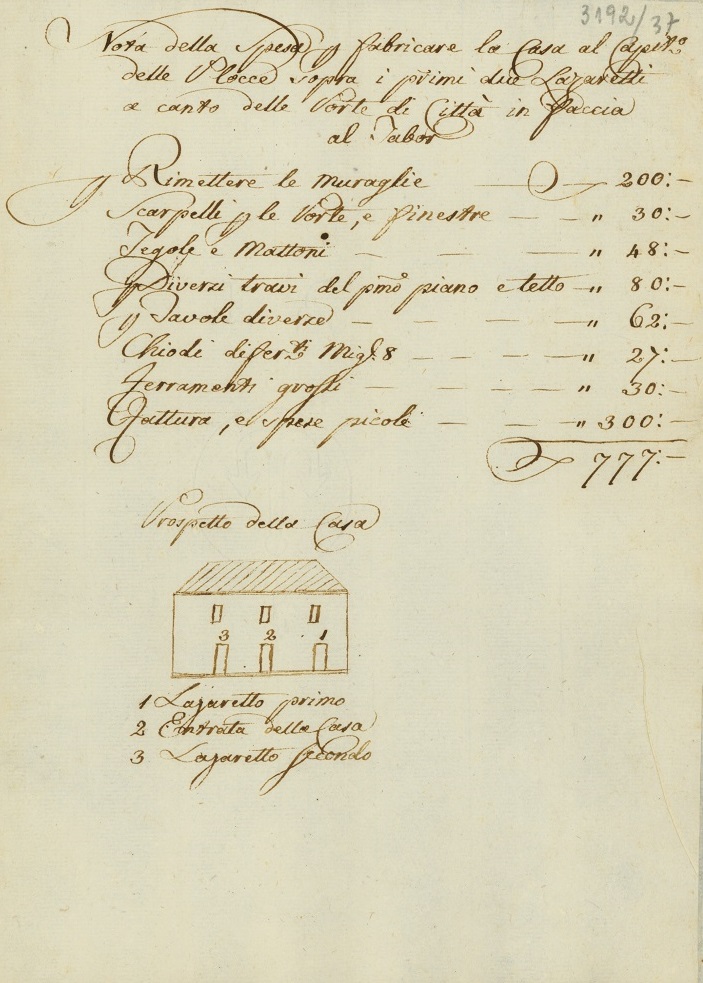 3192/37
Nota della Spesa p fabricare la Casa al Capit:o
delle Plocce sopra i primi due Lazaretti
a canto delle Porte di Città in faccia
al Tabor
p Rimettere le muraglie — 200:—
Scarpelli p le Porte, e finestre — — " 30:—
Tegole e Mattoni — — — " 48:—
p Diverzi travi del pmo piano e tetto — " 80:—
p Tavole diverze — — — — " 62:—
Chiodi difer:ti Migl: 8 — — — — " 27:—
Ferramenti grossi — — — — " 30:—
Fattura, e spese picole — — — " 300:—
777:—
Prospetto della Casa
3 2 1
1 Lazaretto primo
2 Entrata della Casa
3 Lazaretto Secondo